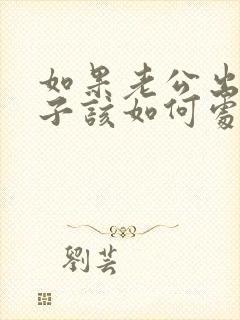 如果老公出
子該如何處
劉芸